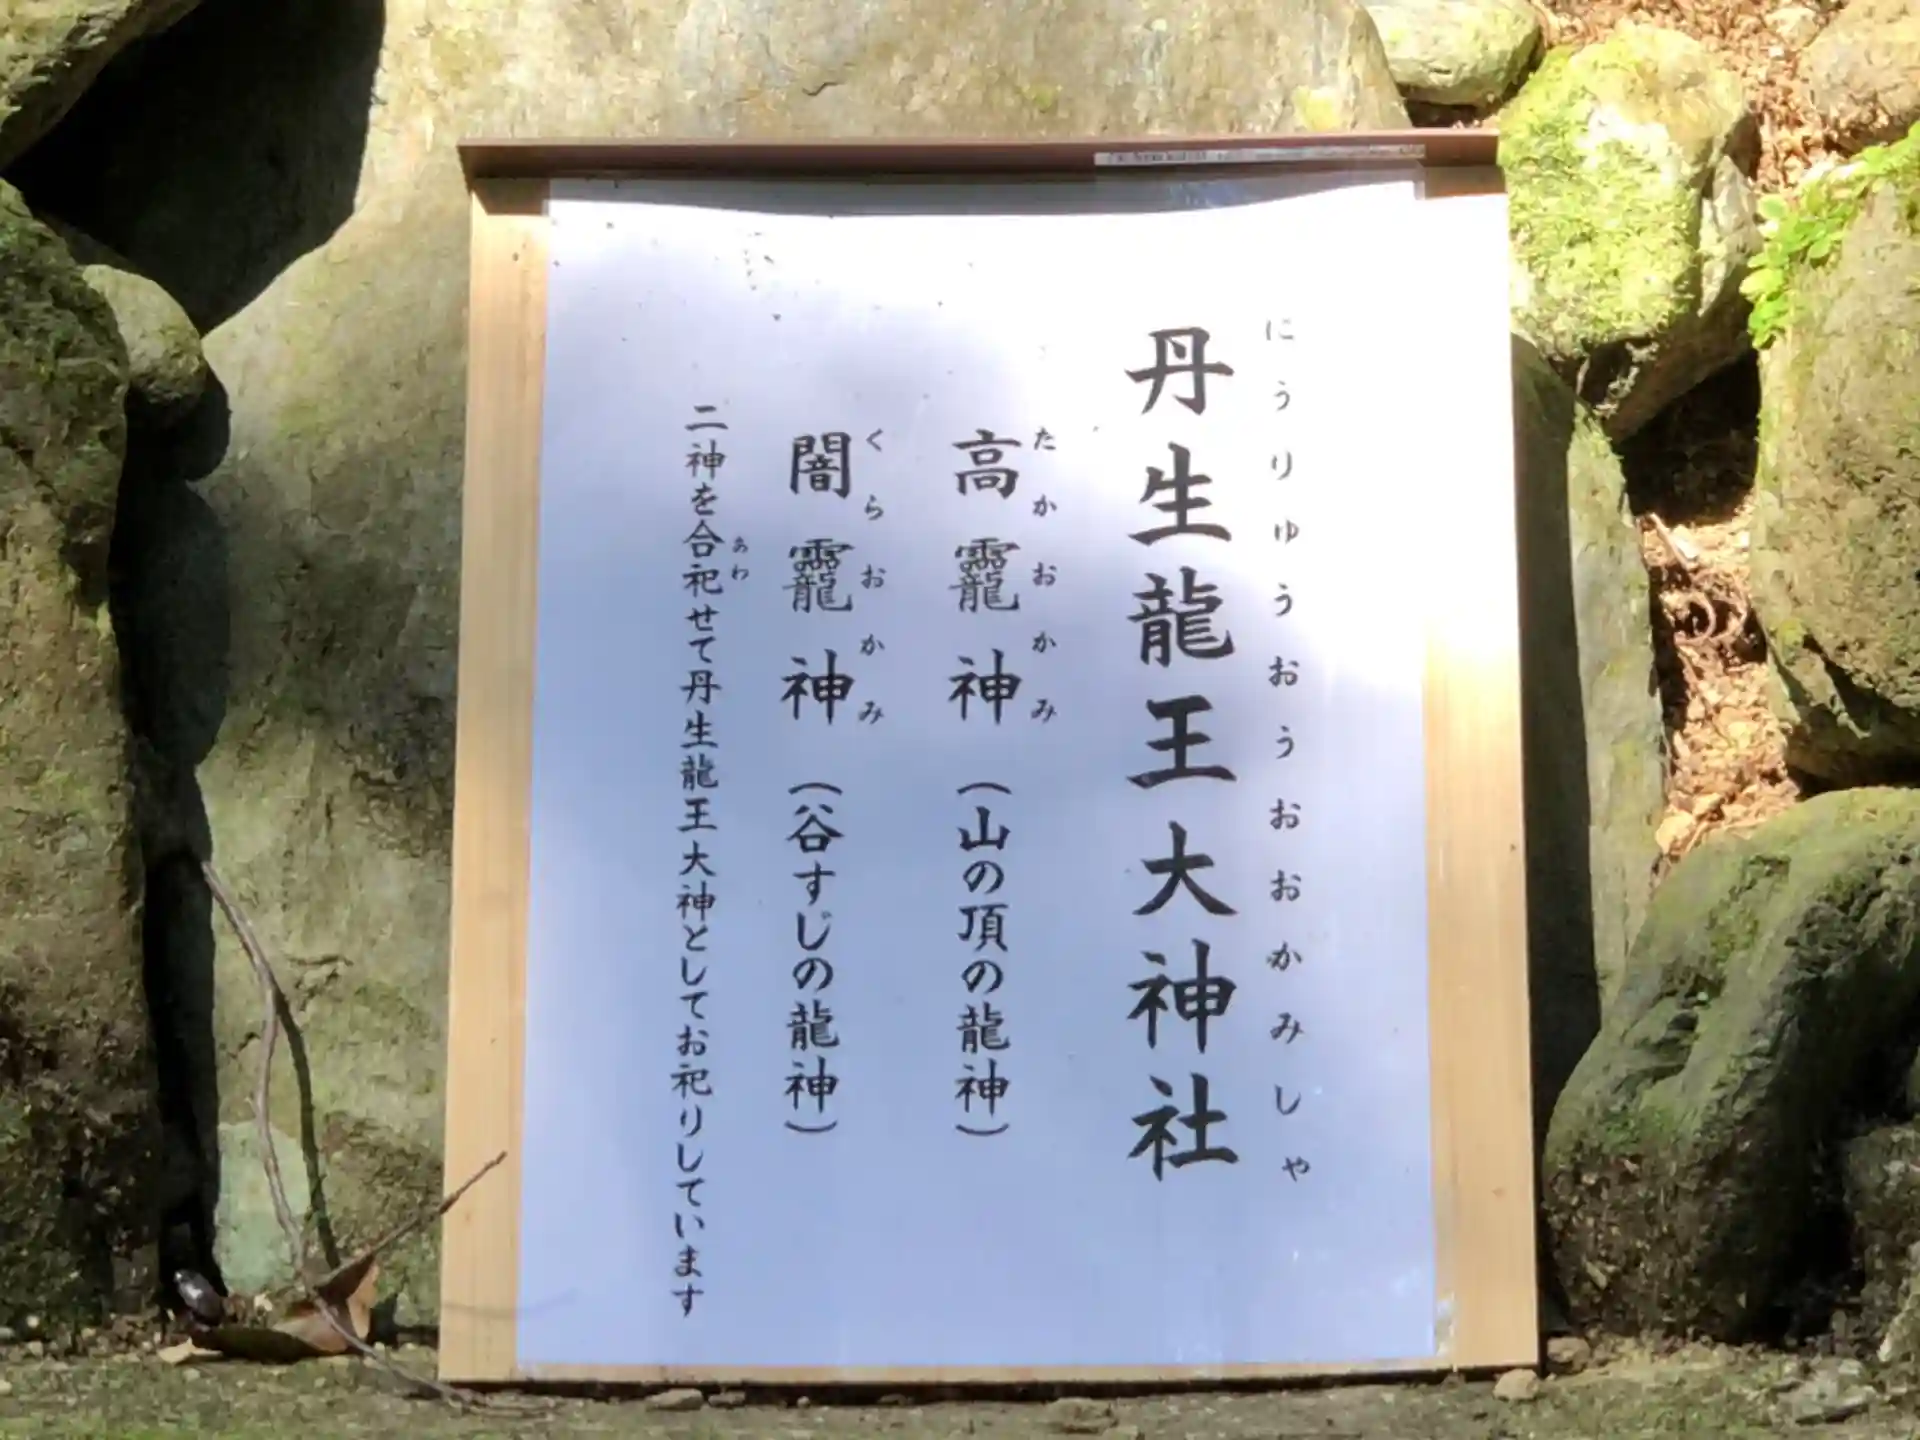 にうりゅうおうおおかみしゃ
丹生龍王大神社
たかおかみ
高龗神(山の頂の龍神)
くらおかみ
闇龗神(谷すじの龍神)
あわ
二神を合祀せて丹生龍王大神としてお祀りしています